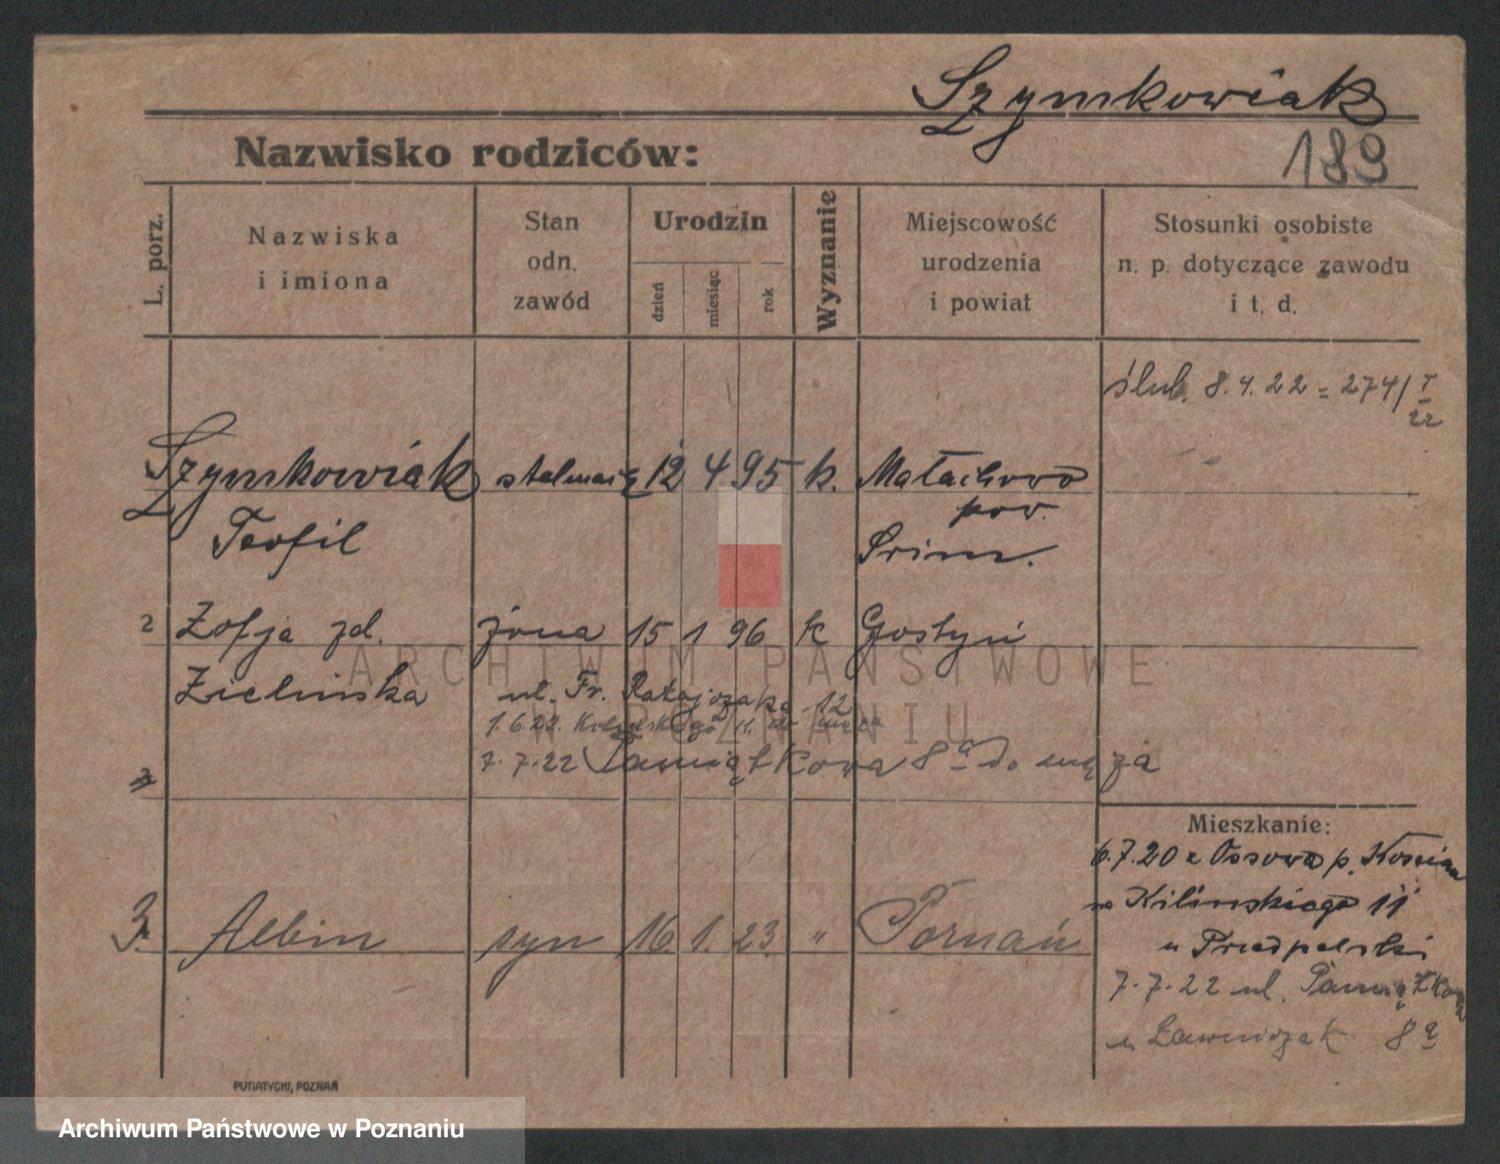 Szymkowiak
189
Nazwisko rodziców:
L. porz.
Nazwiska
i imiona
Stan
odn.
zawód
Urodzin
dzień
miesiąc
rok
Wyznanie
Miejscowość
urodzenia
i powiat
Stosunki osobiste
n. p. dotyczące zawodu
i t. d.
ślub. 8.4.22 = 274/I
22
Szymkowiak stelmach 12 4 95 k. Małachowo
pow.
Teofil Śrim.
2 Zofja zd. żona 15 1 96 k Gostyń
ARCHIWUM PAŃSTWOWE
Zielińska ul. Fr. Ratajczaka 12
1.6.22. Kilińskiego 11. do męża
W POZNANIU
7.7.22 Pamiątkowa 8a do męża
Mieszkanie:
6.7.20 z Ossowa p. Kościan
Kilińskiego 11
u Przedpelski
3. Albin syn 16. 1. 23. " Poznań
7.7.22 ul. Pamiątkowa
u Ławniczak 8a
PUTIATYCKI, POZNAŃ
Archiwum Państwowe w Poznaniu